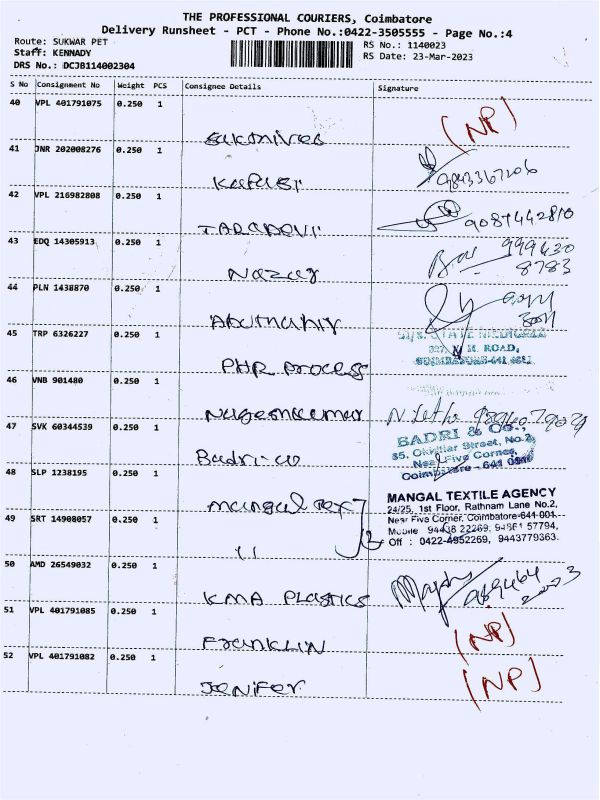 THE PROFESSIONAL COURIERS, Coimbatore
Delivery Runsheet - PCT - Phone No.:0422-3505555 - Page No.:4
Route: SUKWAR PET
Staff: KENNADY
DRS No.: DCJB114002304
RS No.: 1140023
RS Date: 23-Mar-2023
S No Consignment No Weight PCS Consignee Details Signature
40 VPL 401791075 0.250 1
(NP)
41 JNR 202008276 0.250 1
9843367206
42 VPL 216982808 0.250 1
TARADEVI 9087442810
43 EDQ 14305913 0.250 1
Nazar 999430
8783
44 PLN 1438870 0.250 1
45 TRP 6326227 0.250 1
PHR process
M. ROAD,
COIMBATORE-641
46 VNB 901480 0.250 1
Nageshkumar
47 SVK 60344539 0.250 1
Badri-co
BADRI & Co.,
85, Okkiliar Street, No.2,
Near Five Corner,
Coimbatore - 641
48 SLP 1238195 0.250 1
Mangal Tex
49 SRT 14908057 0.250 1
11
MANGAL TEXTILE AGENCY
24/25, 1st Floor, Rathnam Lane No.2,
Near Five Corner, Coimbatore-641 001.
Mobile 94438 22269, 94861 57794,
Off : 0422-4952269, 9443779363.
50 AMD 26549032 0.250 1
KMA PLASTICS
51 VPL 401791085 0.250 1
FRANKLIN (NP)
52 VPL 401791082 0.250 1
JENIFER (NP)